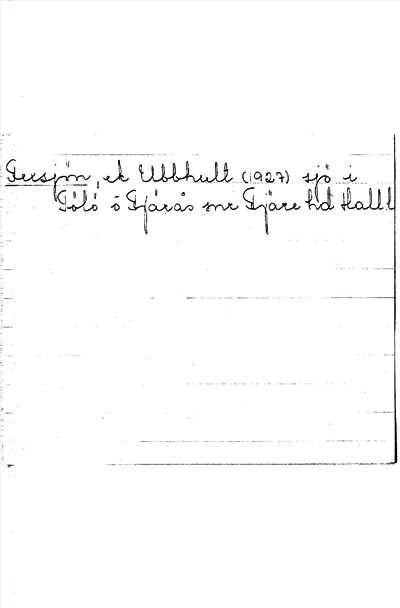 sjön, ek Ubbhult (1927) sjö i
Tölö o Fjärås snr Fjäre hd Hall l